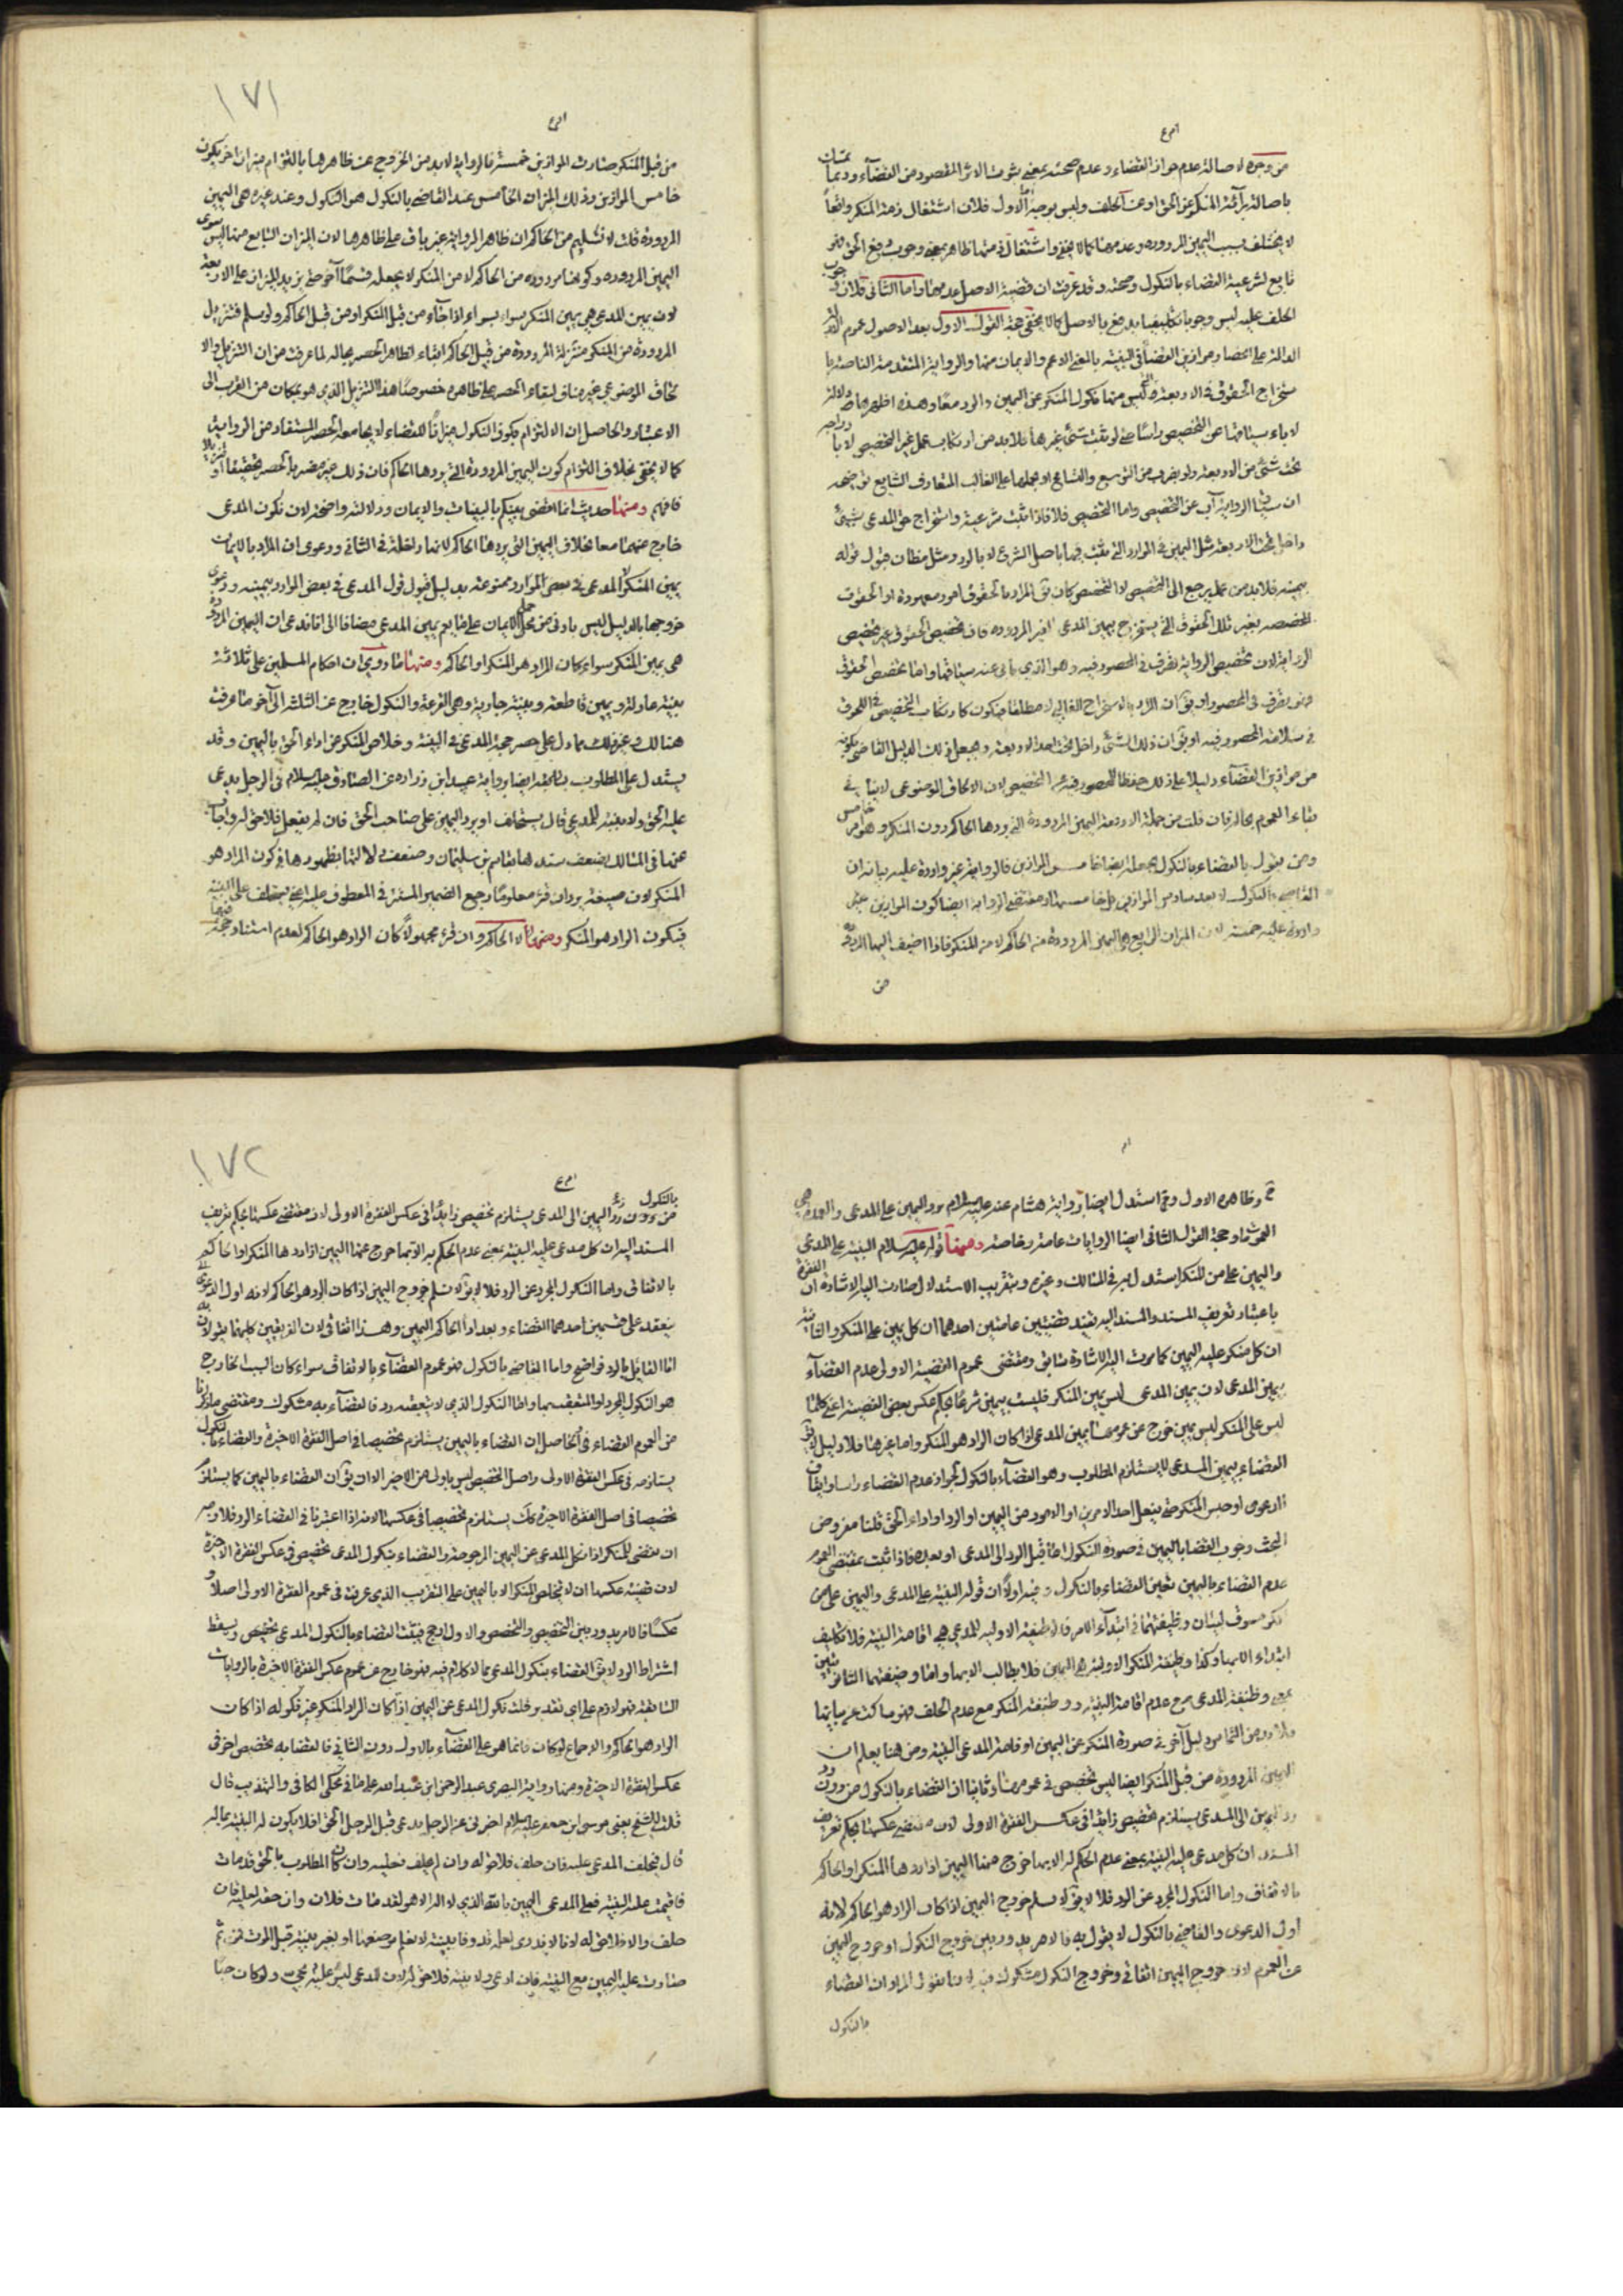 من وجوه لاصالة عدم جواز القضاء وعدم صحته بمعنى ترتب الاثر المقصود من القضاء وربما يتمسك
باصالة برائة المنكر عن الحق او عن الحلف وليس بوجيه اما الاول فلان اشتغال ذمة المنكر واقعاً
لا يختلف بسبب اليمين المردودة وعدمها كما لا يخفى واشتغال ذمتها ظاهراً بمعنى وجوب دفع الحق
تابع لشرعية القضاء بالنكول وصحته وقد عرفت ان قضية الاصل عدمها واما الثاني فلان وجوب
الحلف عليه ليس وجوبا تكليفيا يدفع بالاصل كما لا يخفى حجة القول الاول بعد الاصول عموم
الدالة على انحصار موازين القضاء في البينة بالمعنى الاعم والايمان منها الرواية المتقدمة الناصة با
ستخراج الحقوق في الاربعة التي ليس منها نكول المنكر عن اليمين والرد معا وهذه اظهرها دلالة
لاباء سياقها عن التخصيص راسا حتى لو ثبت شيء غيرها فلا بد من ارتكاب عمل غير التخصيص
تحت شيء من الاربعة ولو بضرب من التوسع والتسامح او بحملها على الغالب المتعارف الشايع توضيحه
ان سياق الرواية آب عن التخصيص واما التخصص فلا فاذا ثبت شرعية واستخراج حق المدعى بشيء
داخل تحت الاربعة مثل اليمين في الموارد التي ثبت فيها باصل الشرع لا بالرد ومثل مظان قبول قوله
بيمينه فلا بد من عمل يرجع الى التخصص لا التخصيص كان يق المراد بالحقوق امور معهودة او الحقوق
المخصصة بغير تلك الحقوق التي يستخرج بيمين المدعى الغير المردودة فان تخصيص الحقوق غير تخصيص
الرواية لان تخصيص الرواية تصرف في المحصور فيه وهو الذي يأبى عنه سياقها واما تخصيص الحقوق
فهو تصرف في المحصور او يق ان المراد بالاستخراج الغالبي لا مطلقا فيكون كارتكاب التخصيص في الحقوق
في سلامة المحصور فيه او يق ان ذلك الشيء داخل تحت احد الاربعة ويجعل ذلك الدليل القاضي بكونه
من موازين القضاء دليلا على ذلك حفظا للمحصور فيه عن التخصيص لان الالحاق الموضوعي لا ينافي
بقاء العموم بحاله فان قلت من جملة الاربعة اليمين المردودة التي يردها الحاكم دون المنكر وهو خامس
ومن يقول بالقضاء بالنكول يجعله ايضا خامس الموازين فالرواية غير واردة عليه بيانه ان
القاضي بالنكول لا يعد سادس الموازين بل خامسها اذ مقتضى الرواية ايضا كون الموازين
واردة عليه خمسة لان الميزان الرابع هو اليمين المردودة من الحاكم لا من المنكر فاذا اضيف اليها المردودة
من
١٧١
من قبل المنكر صارت الموازين خمسة فالرواية لا بد من الخروج عن ظاهرها بالتزام ميزان آخر يكون
خامس الموازين وذلك الميزان الخامس عند القاضي بالنكول هو النكول وعند غيره هي اليمين
المردودة قلت لا نسلم من الحاكم ان ظاهر الرواية غير باق على ظاهرها لان الميزان الرابع منها ليس سوى
اليمين المردودة وكونها مردودة من الحاكم لا من المنكر لا يجعله قسماً آخر حتى يزيد الميزان على الاربعة
لان يمين المدعى هي يمين المنكر سواء بسواء اذا جاء من قبل المنكر او من قبل الحاكم ولو سلم فتنزيل
المردودة من المنكر منزلة المردودة من قبل الحاكم ابقاء لظاهر الحصر بحاله لما عرفت من ان التنزيل والا
لحاق الموضوعي غير مناف لبقاء الحصر على ظاهره خصوصا هذا التنزيل الذي هو بمكان من القرب الى
الاعتبار والحاصل ان الالتزام بكون النكول ميزاناً للقضاء لا يجامع الحصر المستفاد من الرواية
كما لا يخفى بخلاف التزام كون اليمين المردودة التي يردها الحاكم فان ذلك غير مضر بالحصر تحقيقا او تنزيلا
فافهم ومنها حديث انما اقضى بينكم بالبينات والايمان ودلالته واضحة لان نكول المدعى
خارج عنهما معا بخلاف اليمين التي يردها الحاكم لانها داخلة في الثاني ودعوى ان المراد بالايمان
يمين المنكر لا المدعى في بعض الموارد ممنوعة بدليل قبول قول المدعى في بعض الموارد بيمينه ودعوى
خروجها بالدليل ليس باولى من حمل الايمان على ما يعم يمين المدعى مضافا الى انا ندعى ان اليمين المردودة
هي يمين المنكر سواء كان الراد هو المنكر او الحاكم ومنها ما روى ان احكام المسلمين على ثلاثة
بينة عادلة ويمين قاطعة وسنة جارية وهي القرعة والنكول خارج عن الثلثة الى آخر ما عرفت
هنالك وغير ذلك مما دل على حصر حجة المدعى في البينة وخلاص المنكر عن اداء الحق باليمين وقد
يستدل على المطلوب بصحيحة ايضا رواية عبيد ابن زرارة عن الصادق عليه السلام في الرجل يدعى
عليه الحق ولا بينة للمدعى قال يستحلف او يرد اليمين على صاحب الحق فان لم يفعل فلا حق له واجاب
عنها في المسالك بضعف سندها بقاسم بن سليمان وضعف دلالتها بظهورها في كون المراد هو
المنكر لان صيغة يرد ان قرء معلوما رجع الضمير المستتر في المعطوف عليه اعني يستحلف على
فيكون الراد هو المنكر ومنها لا الحاكم وان قرء مجهولاً كان الراد هو الحاكم لعدم استناد
ثم وظاهره الاول وقد استدل ايضا برواية هشام عنه عليه السلام برد اليمين على المدعى والعمدة هي
العموم وحجة القول الثاني ايضا الروايات عامة وخاصة ومنها قوله عليه السلام البينة على المدعى
واليمين على من انكر استدل به في المسالك وغيره وتقريب الاستدلال ما مرت اليه الاشارة ان الفقرة
باعتبار تعريف المسند والمسند اليه تفيد قضيتين عامتين احدهما ان كل يمين على المنكر والثانية
ان كل منكر عليه اليمين كما مرت اليه الاشارة سابق ومقتضى عموم القضية الاولى عدم القضاء
بيمين المدعى لان يمين المدعى ليس يمين المنكر فليست بيمين شرعا بحكم عكس بعض القضية اعنى كلما
ليس على المنكر ليس يمين خرج عن عمومها يمين المدعى اذا كان الراد هو المنكر واما غيرها فلا دليل لا يق
القضاء بيمين المدعى لا يستلزم المطلوب وهو القضاء بالنكول لجواز عدم القضاء راسا وايقاف
الدعوى او حبس المنكر حتى يفعل احد الامرين او الامور من اليمين او الرد او اداء الحق قلنا مفروض
البحث وجوب القضاء باليمين في صورة النكول اما قبل الرد الى المدعى او بعده فاذا ثبت بمقتضى العموم
عدم القضاء باليمين تعين القضاء بالنكول وفيه اولاً ان قوله البينة على المدعى واليمين على من
انكر مسوق لبيان وظيفتهما في ابتداء الامر فالوظيفة الاولية للمدعى هي اقامة البينة فلا تكليف
ابتداء الا بها وكذا وظيفة المنكر الاولية هي اليمين فلا يطالب الا بها واما وظيفتهما الثانويتين
يعنى وظيفة المدعى مع عدم اقامة البينة ووظيفة المنكر مع عدم الحلف فهو ساكت عن بيانها
فلا بد من التماس دليل آخر في صورة المنكر عن اليمين او اقامة المدعى البينة ومن هنا يعلم ان
اليمين المردودة من قبل المنكر ايضا ليس تخصيص في عمومها وثانيا ان القضاء بالنكول من دون
رد اليمين الى المدعى يستلزم تخصيص زايدا في عكس الفقرة الاولى لان مقتضى عكسها بحكم تعريف
المسند ان كل مدعى عليه البينة بمعنى عدم الحكم له الا بها خرج منها اليمين اذا ردها المنكر او الحاكم
بالاتفاق واما النكول المجرد عن الرد فلا لا يق لا نسلم خروج اليمين اذا كان الراد هو الحاكم لانه
اول الدعوى والقاضي بالنكول لا يقول به فالامر يدور بين خروج النكول او خروج اليمين
عن العموم لان خروج اليمين اتفاقي وخروج النكول مشكوك فيه لانا نقول المراد ان القضاء
بالنكول
١٧٢
بالنكول من دون رد اليمين الى المدعى يستلزم تخصيص زايدا في عكس الفقرة الاولى لان مقتضى عكسها بحكم تعريف
المسند اليه ان كل مدعى عليه البينة بمعنى عدم الحكم به الا بها خرج عنها اليمين اذا ردها المنكر او الحاكم
بالاتفاق واما النكول المجرد عن الرد فلا لا يق لا نسلم خروج اليمين اذا كان الراد هو الحاكم لانه اول الدعوى
ينعقد على قسمين احدهما القضاء وبعد اداء الحاكم اليمين وهذا اتفاقي لان الفريقين كليهما يقولان به
اما القائل بالرد فواضح واما القاضي بالنكول فهو عموم القضاء بالاتفاق سواء كان السبب الخارج
هو النكول المجرد او المتعقب بها واما النكول الذي لا يتعقبه رد فالقضاء به مشكوك ومقتضى
من العموم القضاء في الحاصل ان القضاء باليمين يستلزم تخصيصا في اصل الفقرة الاخيرة والقضاء بالنكول
يستلزمه في عكس الفقرة الاولى واصل التخصيص ليس باولى من الاخير الا ان يق ان القضاء باليمين كما يستلزم
تخصيصا في اصل الفقرة الاخيرة كك يستلزم تخصيصا في عكسها الا انه اذا اعتبرنا في القضاء الرد فلا وجه
ان يقضى للمنكر اذا نكل المدعى عن اليمين المرجوحة والقضاء بنكول المدعى تخصيص في عكس الفقرة الاخيرة
لان قضية عكسها ان لا يخلص المنكر الا باليمين على التقريب الذي عرفته في عموم الفقرة الاولى اصلا و
عكسا فالامر يدور بين التخصيص والتخصص والاول ارجح فيثبت القضاء بالنكول المدعى تخصيص ويسقط
اشتراط الرد لا يق القضاء بنكول المدعى مما لا كلام فيه فهو خارج عن عموم عكس الفقرة الاخيرة بالروايات
السابقة فهو لازم على اي تقدير قلت نكول المدعى عن اليمين اذا كان الراد المنكر غير نكوله اذا كان
الراد هو الحاكم والاجماع لو كان فانما هو على القضاء بالاول دون الثاني فالقضاء به تخصيص آخر في
عكس الفقرة الاخيرة ومنها رواية البصرى عبد الرحمن ابن عبد الله على ما في محكي الكافي والتهذيب قال
قلت للشيخ يعنى موسى ابن جعفر عليه السلام اخبرني عن الرجل يدعى قبل الرجل الحق فلا يكون له البينة بماله
قال فيحلف المدعى عليه فان حلف فلا حق له وان لم يحلف فعليه وان كان المطلوب بالحق قد مات
فاقيمت عليه البينة فعلى المدعى اليمين بالله الذي لا اله الا هو لقد مات فلان وان حقه لعليه فان
حلف والا فلا حق له لانا لا ندري لعله قد وفاه ببينة لا نعلم موضعها او بغير بينة قبل الموت فمن ثم
صارت عليه اليمين مع البينة فان ادعى ولا بينة فلا حق له لان المدعى ليس عليه بحي ولو كان حيا